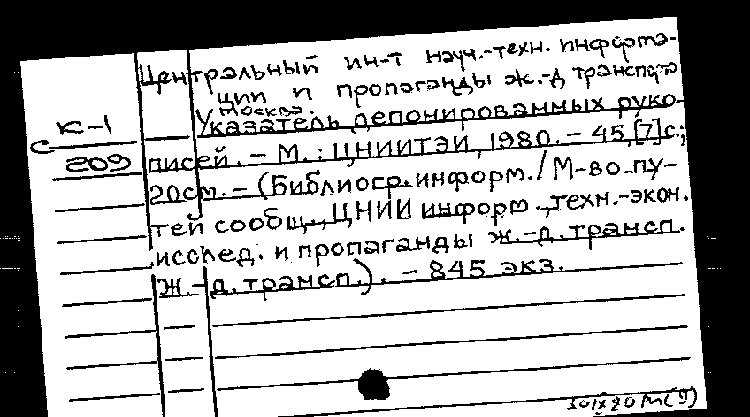 Центральный ин-т науч.-техн. информа-
ции и пропаганды ж.-д транспорта
Москва.
К-1
Указатель депонированных руко-
С
209
писей. – М.: ЦНИИТЭИ, 1980. – 45,[7]с;
20см. – (Библиогр.информ./М-во пу-
тей сообщ., ЦНИИ информ., техн.-экон.
исслед. и пропаганды ж.-д. трансп.
Ж.-д. трансп.). – 845 экз.